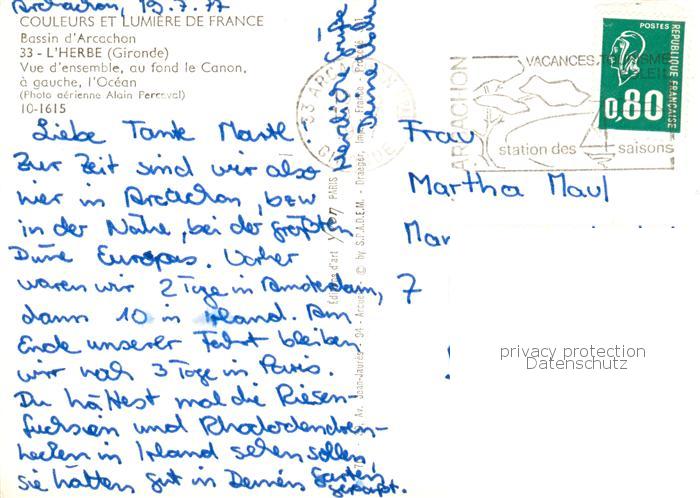 Arcachon, 19.7.77
COULEURS ET LUMIÈRE DE FRANCE
Bassin d'Arcachon
33 - L'HERBE (Gironde)
Vue d'ensemble, au fond le Canon,
à gauche, l'Océan
(Photo aérienne Alain Perceval)
10-1615
Liebe Tante Martl
Zur Zeit sind wir also
hier in Arcachon, bzw
in der Nähe, bei der größten
Düne Europas. Vorher
waren wir 2 Tage in Amsterdam,
dann 10 in Irland. Am
Ende unserer Fahrt bleiben
wir noch 3 Tage in Paris.
Du hättest mal die Riesen-
fuchsien und Rhododendren-
hecken in Irland sehen sollen,
sie hätten gut in Deinen Garten
gepasst.
Herzliche Grüße
Deine
Editions d'art Yvon PARIS
Av. Jean-Jaurès - 94 - Arcueil - © by S.P.A.D.E.M. - Draeger, Imp. France
33 ARC
GIRONDE
ARCACHON
VACANCES
station des
saisons
POSTES
REPUBLIQUE FRANÇAISE
0,80
Frau
Martha Maul
Mar
7
privacy protection
Datenschutz